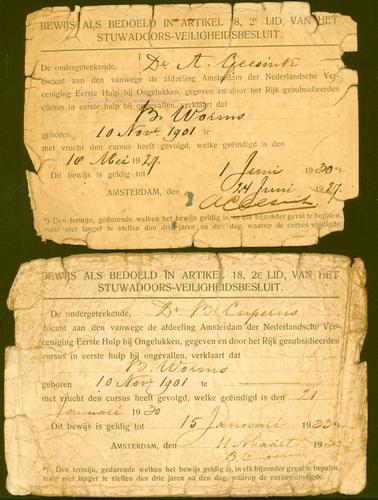 BEWIJS ALS BEDOELD IN ARTIKEL 18, 2e LID, VAN HET
STUWADOORS-VEILIGHEIDSBESLUIT.
De ondergeteekende, Dr A. Geesink
docent aan den vanwege de afdeeling Amsterdam der Nederlandsche Ver-
eeniging Eerste Hulp bij Ongelukken, gegeven en door het Rijk gesubsidieerden
cursus in eerste hulp bij ongevallen, verklaart dat
B. Worms
geboren 10 Nov. 1901 te
met vrucht den cursus heeft gevolgd, welke geëindigd is den
10 Mei 1927.
Dit bewijs is geldig tot 1 Juni 1930*)
AMSTERDAM, den 24 Juni 1927.
*) Den termijn, gedurende welken het bewijs geldig is, in elk bijzonder geval te bepalen,
maar niet langer te stellen dan drie jaren na den dag, waarop de cursus eindigde.
BEWIJS ALS BEDOELD IN ARTIKEL 18, 2e LID, VAN HET
STUWADOORS-VEILIGHEIDSBESLUIT.
De ondergeteekende, Dr B. Cuperus
docent aan den vanwege de afdeeling Amsterdam der Nederlandsche Ver-
eeniging Eerste Hulp bij Ongelukken, gegeven en door het Rijk gesubsidieerden
cursus in eerste hulp bij ongevallen, verklaart dat
B. Worms
geboren 10 Nov. 1901 te
met vrucht den cursus heeft gevolgd, welke geëindigd is den 21
Januari 1930
Dit bewijs is geldig tot 15 Januari 1933*)
AMSTERDAM, den 11 Maart
*) Den termijn, gedurende welken het bewijs geldig is, in elk bijzonder geval te bepalen,
maar niet langer te stellen dan drie jaren na den dag, waarop de cursus eindigde.